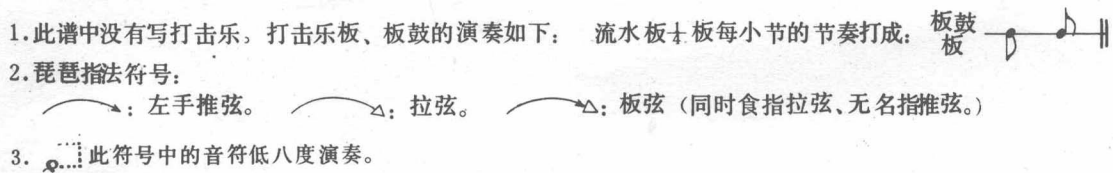 1.此谱中没有写打击乐，打击乐板、板鼓的演奏如下： 流水板¼板每小节的节奏打成： 板鼓
板
2.琵琶指法符号：
：左手推弦。 ：拉弦。 ：板弦（同时食指拉弦、无名指推弦。）
3. 此符号中的音符低八度演奏。